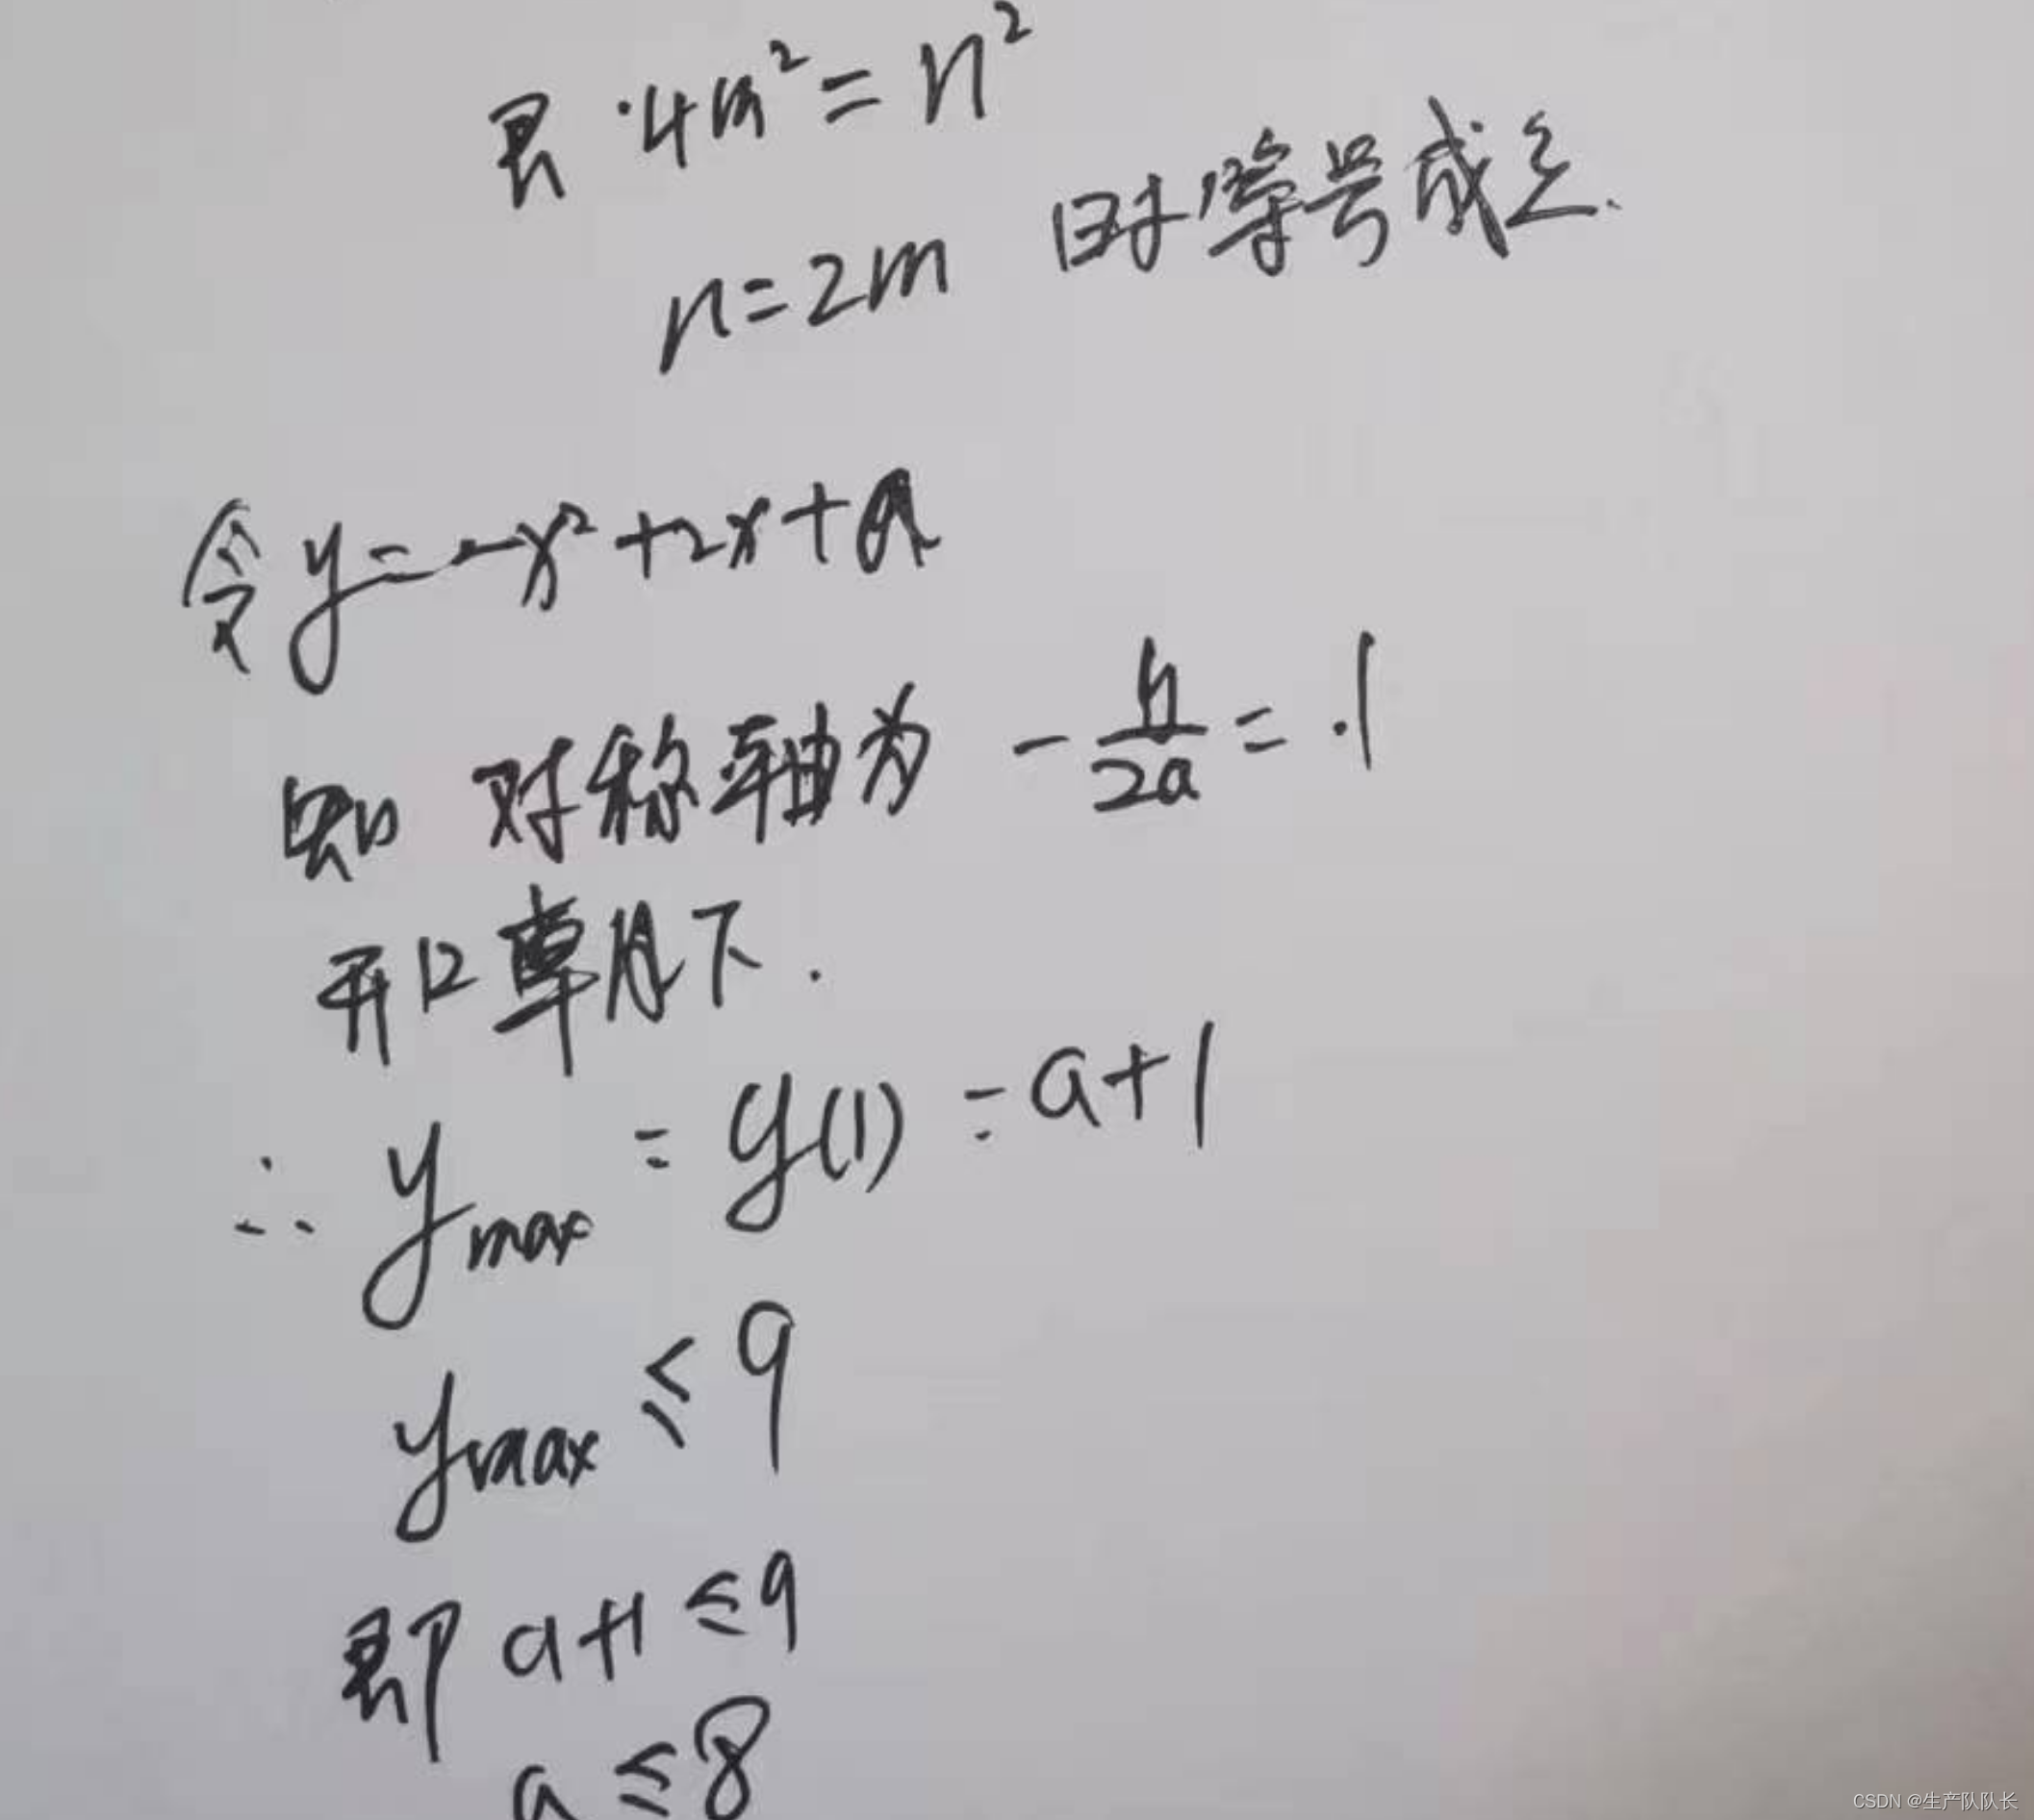 即 4m² = n²
n = 2m 时 等号成立.
令 y = -x² + 2x + a
知 对称轴为 - b/2a = 1
开口向下.
∴ ymax = y(1) = a+1
ymax ≤ 9
即 a+1 ≤ 9
a ≤ 8
CSDN @生产队队长